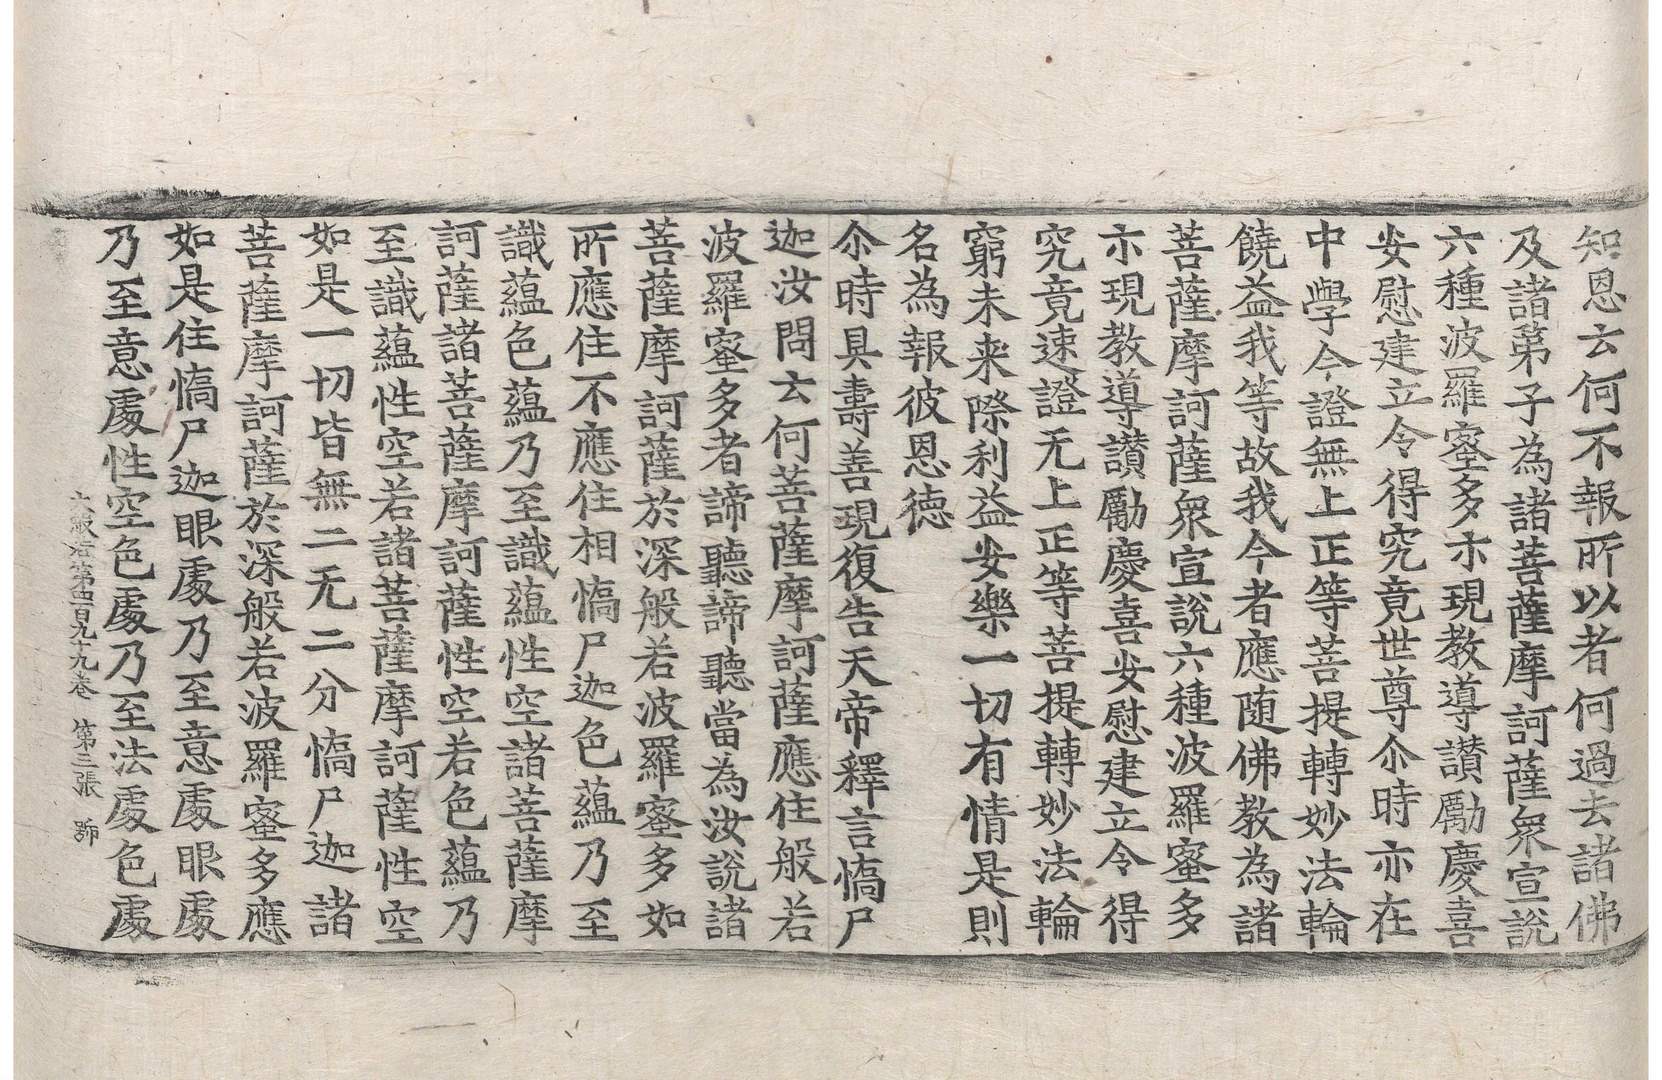 知恩云何不報所以者何過去諸佛
及諸弟子為諸菩薩摩訶薩衆宣說
六種波羅蜜多示現教導讃勵慶喜
安慰建立令得究竟世尊尒時亦在
中學今證無上正等菩提轉妙法輪
饒益我等故我今者應随佛教為諸
菩薩摩訶薩衆宣說六種波羅蜜多
示現教導讃勵慶喜安慰建立令得
究竟速證无上正等菩提轉妙法輪
窮未来際利益安樂一切有情是則
名為報彼恩德
尒時具壽善現復告天帝釋言憍尸
迦汝問云何菩薩摩訶薩應住般若
波羅蜜多者諦聽諦聽當為汝說諸
菩薩摩訶薩於深般若波羅蜜多如
所應住不應住相憍尸迦色蘊乃至
識蘊色蘊乃至識蘊性空諸菩薩摩
訶薩諸菩薩摩訶薩性空若色蘊乃
至識蘊性空若諸菩薩摩訶薩性空
如是一切皆無二无二分憍尸迦諸
菩薩摩訶薩於深般若波羅蜜多應
如是住憍尸迦眼處乃至意處眼處
乃至意處性空色處乃至法處色處
大般若第四百九十九卷 第三張